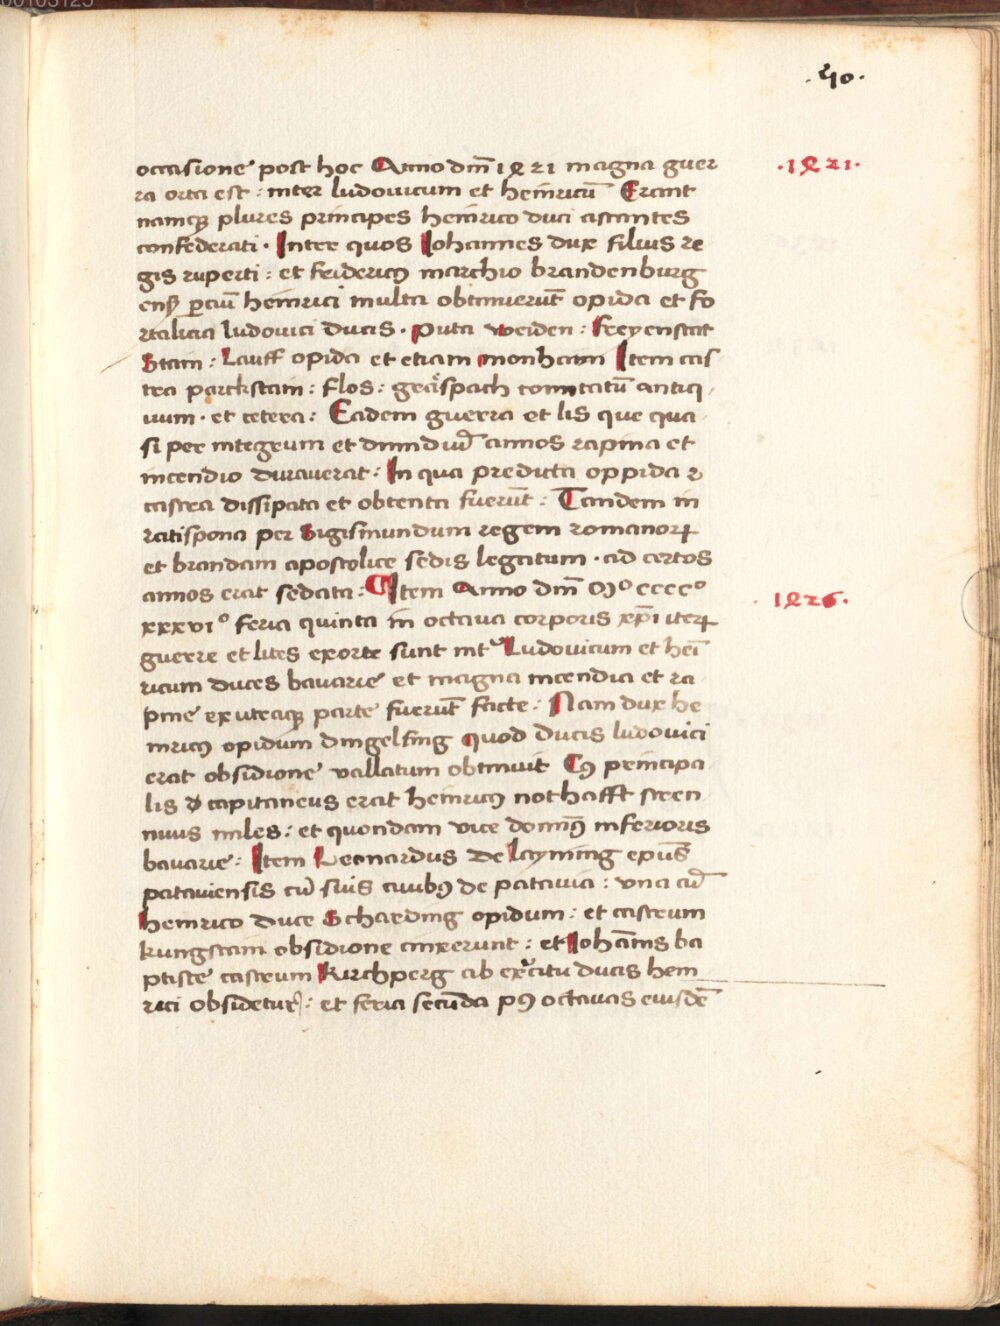 .50.
occasione post hoc Anno dm̄ 1421 magna guer
.1421.
ra orta est : inter ludouicum et heinricū Erant
namqꝫ plures principes heinrico duci astantes
confederati . Inter quos Iohannes dux filius re
gis ruperti : et feidericꝰ marchio brandenburg
ens̄ ꝑciū heinrici multa obtinuerūt opida et fo
rtalicia ludouici ducis . puta weiden : freyenstat
Stain : Lauff opida et etiam monhaim Item cas
tra parckstain : flos : graispach comitatū antiq
uum . et cetera : Eadem guerra et lis que qua
si per integrum et dimidiū annos rapina et
incendio durauerat : In qua predicta oppida ꝛ
castra dissipata et obtenta fuerūt : Tandem in
ratispona per Sigismundum regem romanoꝝ
et brandam apostolice sedis legatum . ad certos
annos erat sedata : Item Anno dm̄ Mº ccccº
1426.
xxxviº feria quinta in octaua corporis xp̄i iteꝝ
guerre et lites exorte sunt int̄ Ludouicum et hei
ricum duces bauarie et magna incendia et ra
pine ex utraqꝫ parte fuerūt facte : Nam dux he
inricꝰ opidum dingelfing quod ducis ludouici
erat obsidione vallatum obtinuit Cꝰ principa
lis d capitaneus erat heinricꝰ nothafft stren
nuus miles : et quondam vice domīꝰ inferioris
bauarie : Item Leonardus de layming ep̄us
patauiensis cū suis ciuibꝰ de patauia : vna cū
heinrico duce Scharding opidum : et castrum
kungstain obsidione cinxerunt : et Iohānis ba
ptiste castrum kirchperg ab ex̄citu ducis hein
rici obsidetur : et feria secūda pꝰ octauas eiusdē